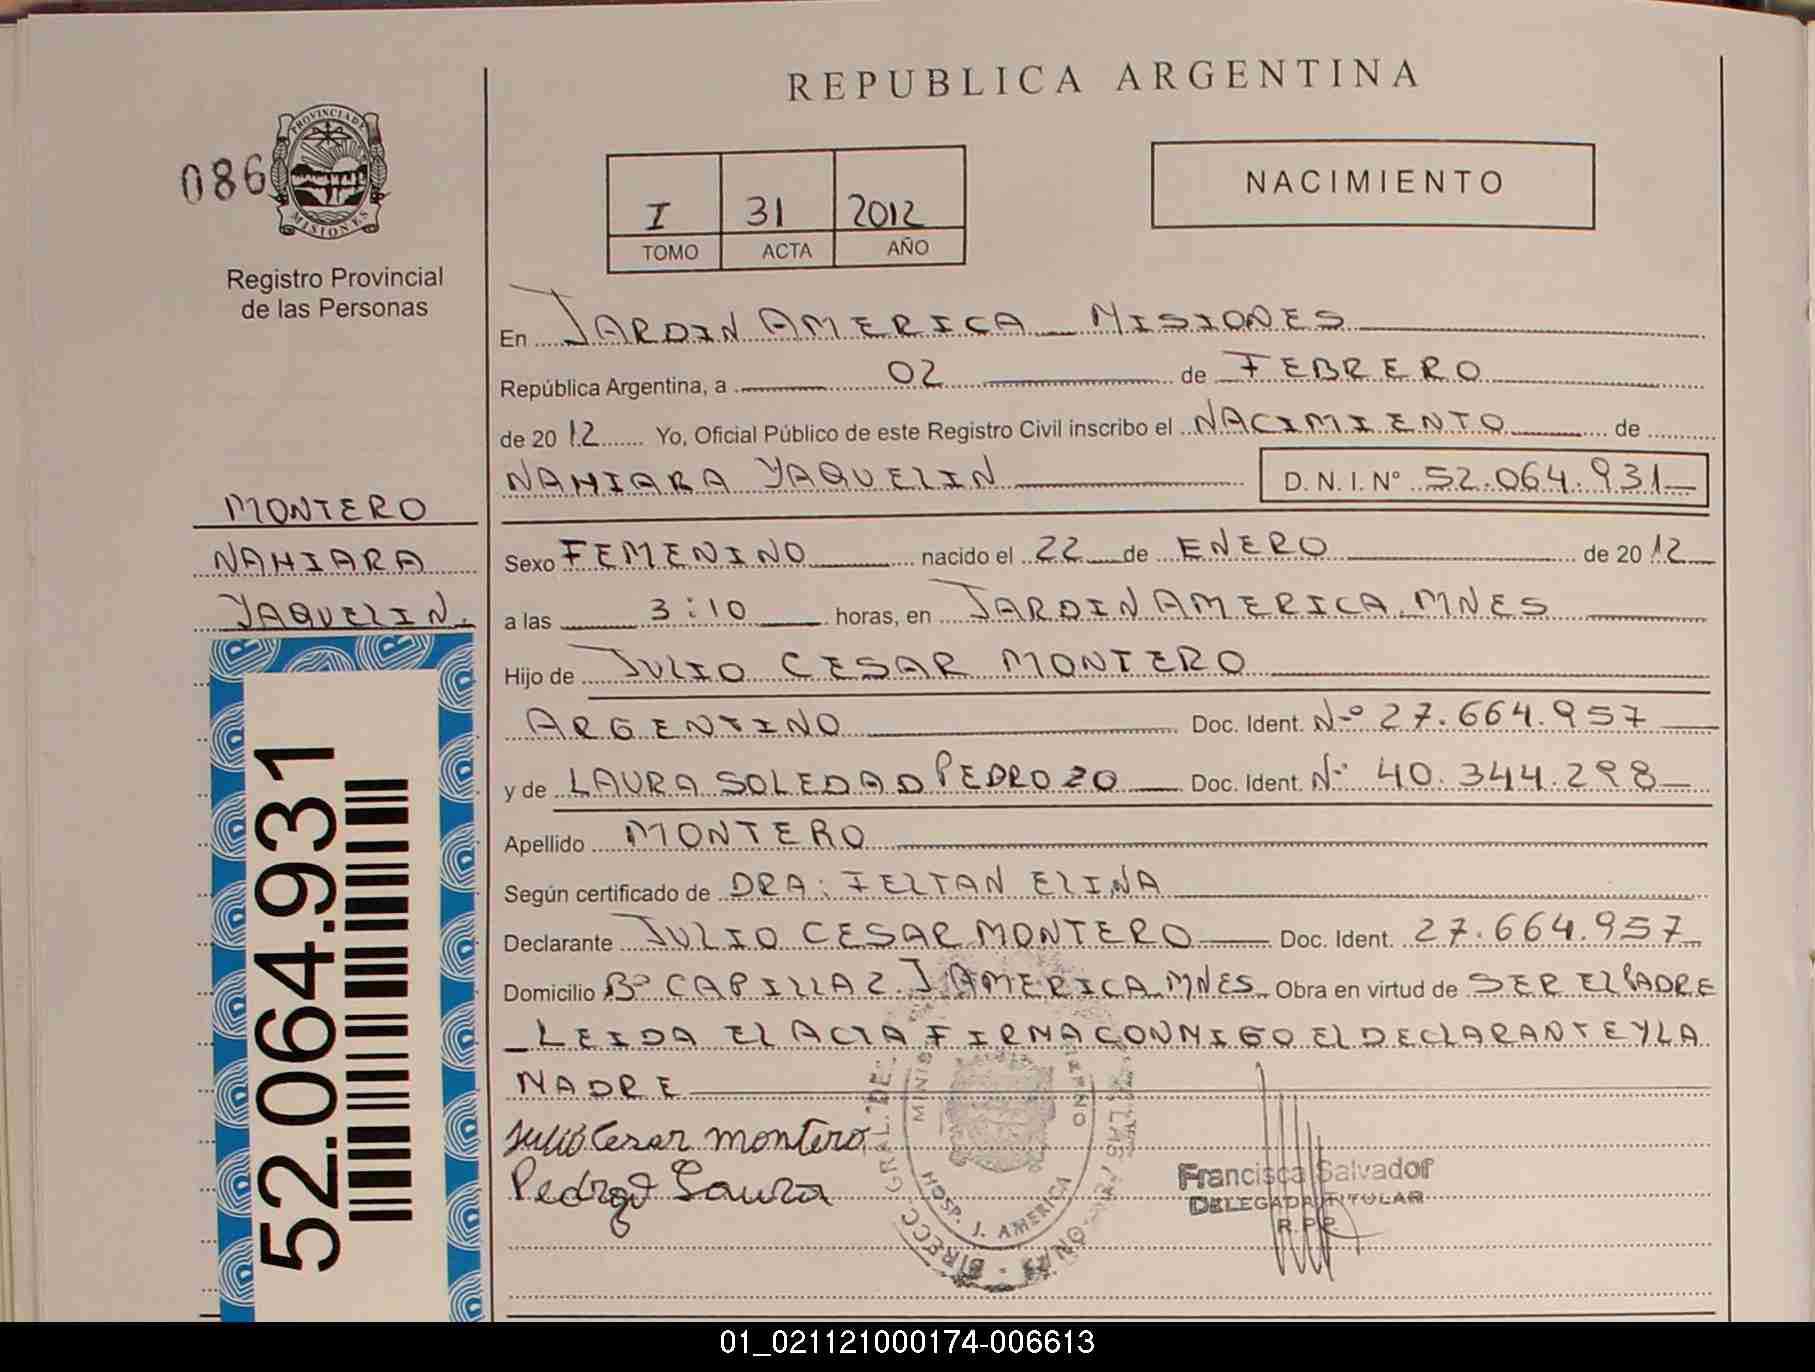 REPUBLICA ARGENTINA
086
PROVINCIA DE
MISIONES
Registro Provincial
de las Personas
I 31 2012
TOMO ACTA AÑO
NACIMIENTO
En JARDIN AMERICA MISIONES
República Argentina, a 02 de FEBRERO
de 2012 Yo, Oficial Público de este Registro Civil inscribo el NACIMIENTO de
NAHIARA YAQUELIN D.N.I. Nº 52.064.931
MONTERO
NAHIARA
YAQUELIN.
52.064.931
Sexo FEMENINO nacido el 22 de ENERO de 2012
a las 3:10 horas, en JARDIN AMERICA. MNES
Hijo de JULIO CESAR MONTERO
ARGENTINO Doc. Ident. Nº 27.664.957
y de LAURA SOLEDAD PEDROZO Doc. Ident. Nº 40.344.298
Apellido MONTERO
Según certificado de DRA: FELTAN ELINA
Declarante JULIO CESAR MONTERO Doc. Ident. 27.664.957
Domicilio Bº CAPILLA 2. J AMERICA. MNES Obra en virtud de SER EL PADRE
LEIDA EL ACTA FIRMA CONMIGO EL DECLARANTE Y LA
MADRE
Julio Cesar montero
Pedrozo Laura
DIRECC. GRAL. DE
HOSP. J. AMERICA
Francisca Salvador
DELEGADA TITULAR
R.P.P.
01_021121000174-006613